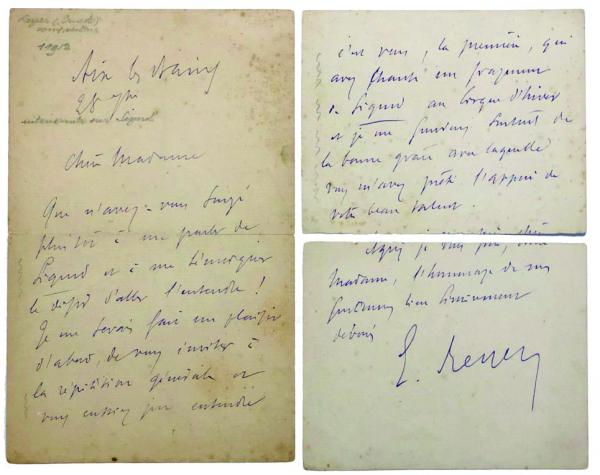 Reyer (Ernest)
compositeur
1912
Aix les Bains
28
intéressante sur Sigurd
Chère Madame
Que n'avez-vous songé
plutôt à me parler de
Sigurd et à me témoigner
le désir d'aller l'entendre !
Je me serais fait un plaisir
d'abord, de vous inviter à
la répétition générale et
vous eussiez pu entendre
c'est vous, la première, qui
avez chanté un fragment
de Sigurd au Cirque d'hiver
et je me souviens surtout de
la bonne grâce avec laquelle
vous m'avez prêté l'appui de
votre beau talent.
Agréez je vous prie, chère
Madame, l'hommage de mes
sentimens bien sincèrement
dévoués
E. Reyer